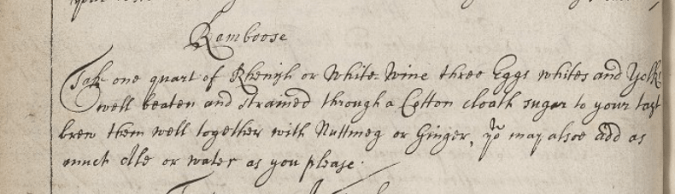 Ramboose
Take one quart of Rhenish or White Wine three Eggs whites and Yolks
well beaten and strained through a Cotton cloath sugar to your tast
brew them well together with Nuttmeg or Ginger, yo may alsoe add as
much Ale or water as you please.